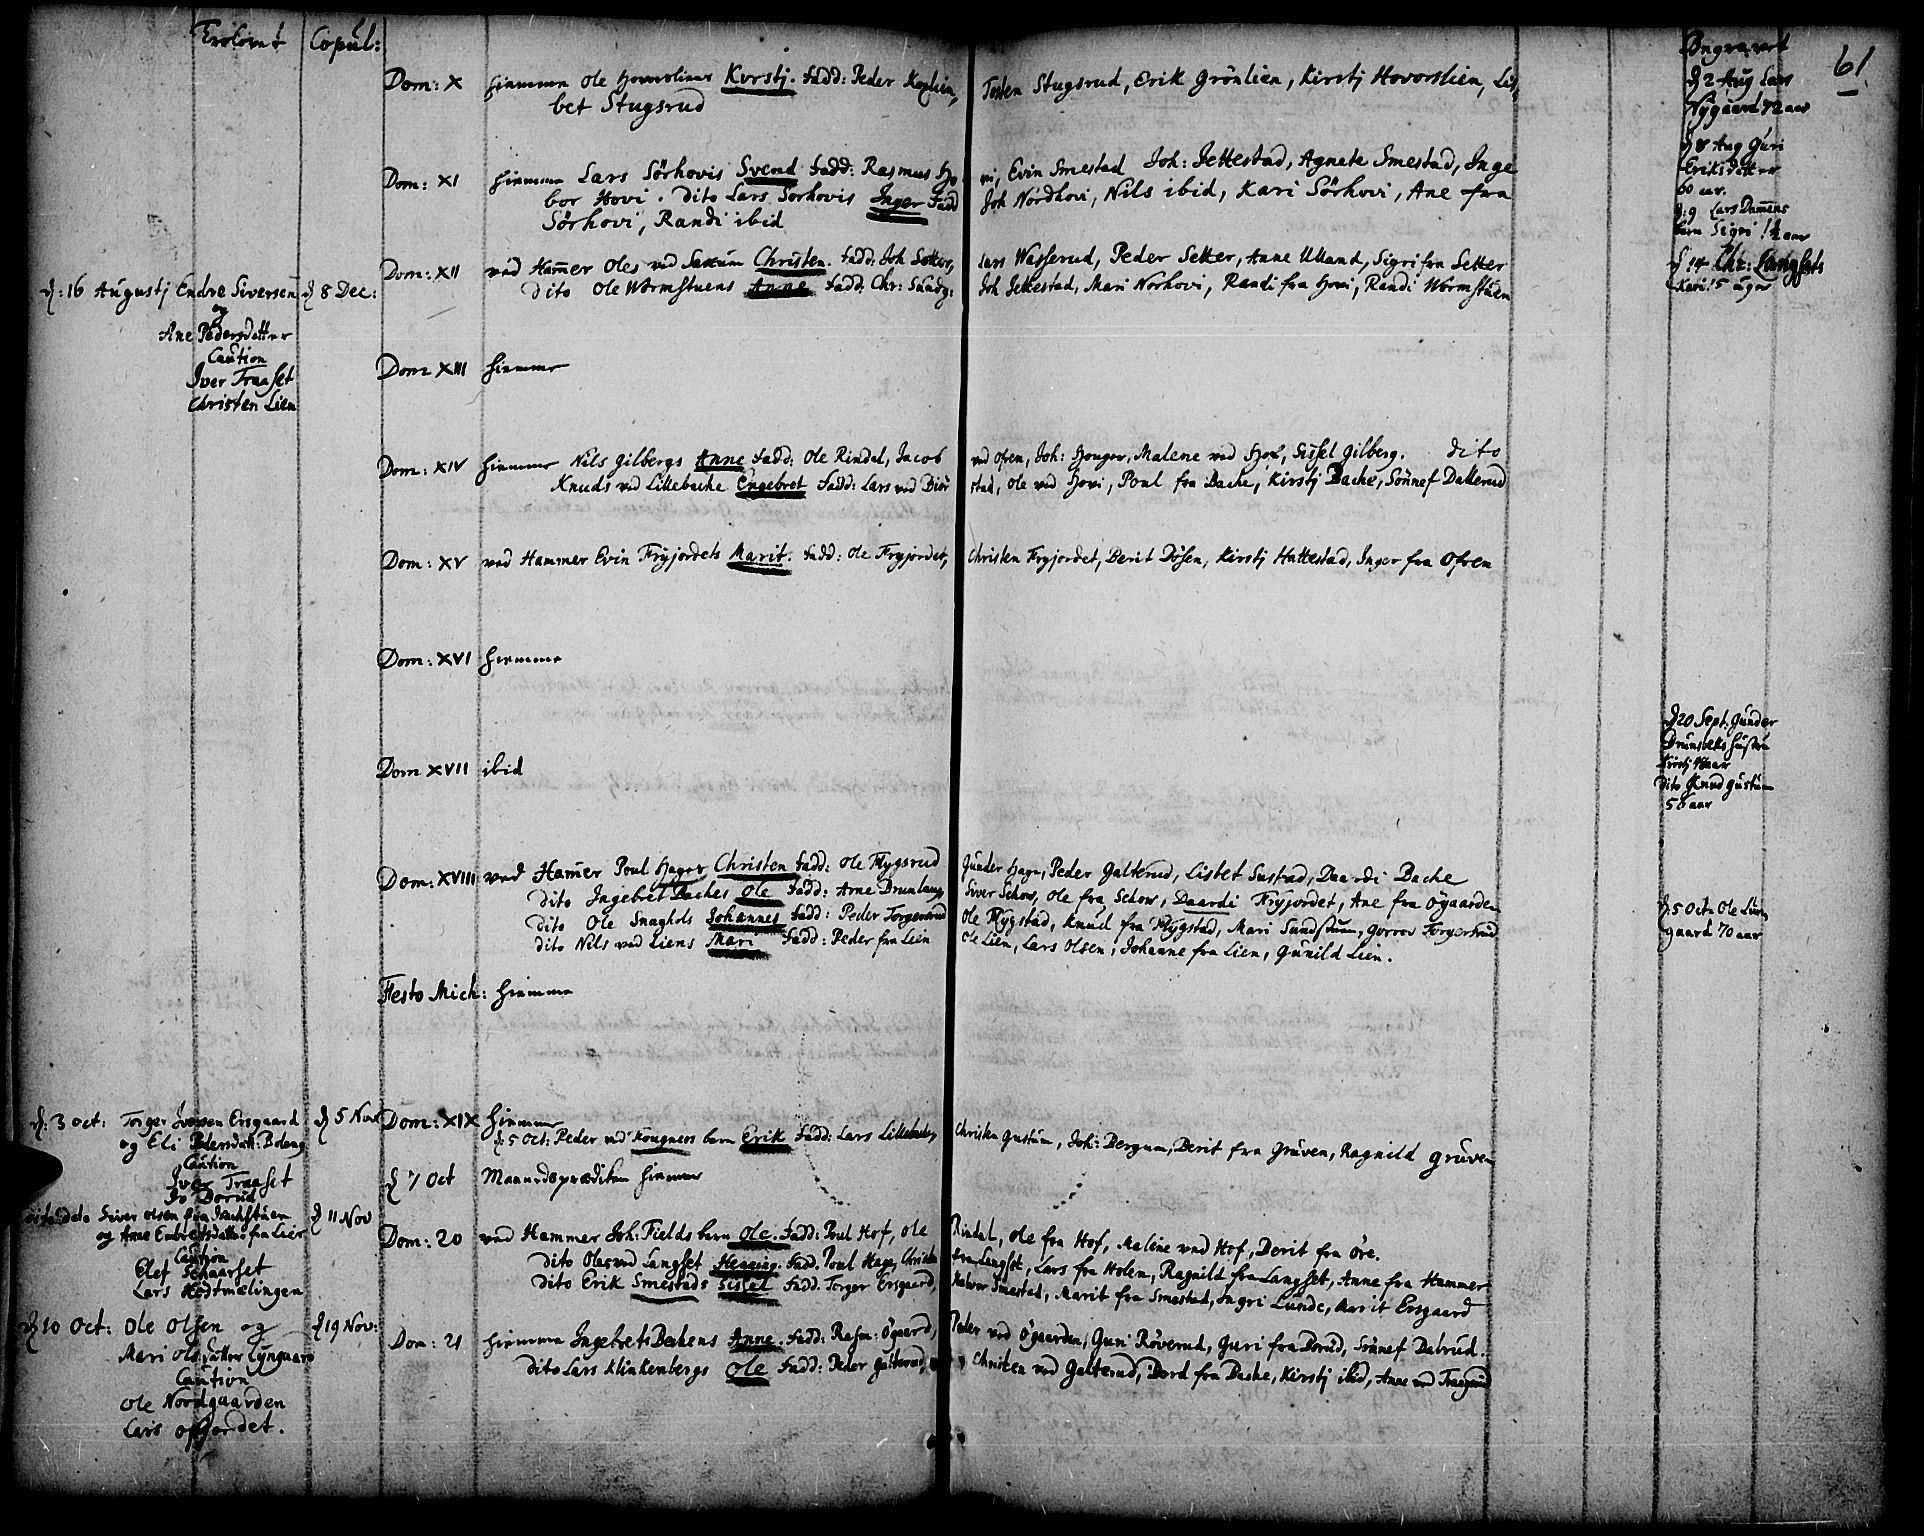 Trolovet Copul:
Dom: X hiemme Ole Hovorsliens Kirstj. Fadd: Peder Koglien, Tosten Stugsrud, Erik Grönlien, Kirstj Hovorslien, Lis-
bet Stugsrud
Dom: XI hiemme Lars Sörhovis Svend Fadd: Rasmus Ho vi, Evin Smestad Joh: Jettestad, Agnete Smestad, Inge
bor Hovi. dito Lars Sorhovis Inger Fadd Joh Nordhovi, Nils ibid, Kari Sörhovi, Ane fra
Sörhovi, Randi ibid
Dom: XII ved Hamer Oles ved Saxum Christen. Fadd: Joh Setter, Lars Wasserud, Peder Setter, Anne Ulland, Sigri fra Setter
dito Ole Wormstuens Anne Fadd: Chr: Sundg: Joh Jettestad, Mari Norhovi, Randi fra Hovi, Randi Wormstuen
d: 16 Augustj Endre Siversen d 8 Dec:
og
Ane Pedersdatter
Caution
Iver Traaset
Christen Lien
Dom XIII hiemme
Dom: XIV hiemme Nils Gilbergs Anne Fadd: Ole Rindal, Jacob ved Ofren, Joh: Honger, Malene ved Hof, Sissel Gilberg. dito
Knuds ved Lillebache Engebret Fadd: Lars ved Biör stad, Ole ved Hovi, Poul fra Bache, Kirstj Bache, Sönnef Dallerud
Dom: XV ved Hammer Evin Fryjordets Marit. Fadd: Ole Fryjordet, Christen Fryjordet, Berit Dösen, Kirstj Hattestad, Inger fra Ofren
Dom: XVI hiemme
Dom XVII ibid
Dom: XVIII ved Hamer Poul Hages Christen Fadd: Ole Flygsrud Gunder Hage, Peder Galterud, Lisbet Sustad, Daardi Bache
dito Ingebret Baches Ole Fadd: Arne Brunlaug Siver Schow, Ole fra Schow, Daardi Fryjordet, Ane fra Øgaarden
dito Ole Snaghols Johannes Fadd: Peder Torgersrud Ole Flygstad, Knud fra Flygstad, Mari Sundstuen, Gorroe Torgersrud
dito Nils ved Liens Mari Fadd: Peder fra Lein Ole Lien, Lars Olsen, Johanne fra Lien, Gunild Lien.
Festo Mich: hiemme
d: 3 Oct: Torger Iversen Ersgaard d 5 Nov
og Eli Pedersdatt: Boleng
Caution
Iver Traaset
Jo Dorud
Dom: XIX hiemme
d: 5 Oct: Peder ved Kougners barn Erik Fadd: Lars Lillebache, Christen Gustum, Joh: Bergum, Berit fra Gruven, Ragnild Gruven
d 7 Oct Maanedsprædiken hiemme
dito dato Siver Olsen fra d 11 Nov
og Anne Embretsdatter fra Leir
Caution
Olef Schaarset
Lars Hostmælingen
Dom: 20 ved Hammer Joh: Fields barn Ole. Fadd: Poul Hof, Ole Rindal, Ole fra Hof, Maline ved Hof, Berit fra Öre.
dito Oles ved Langset Henning. Fadd. Poul Hage, Christen fra Langset, Lars fra Holen, Ragnild fra Langset, Anne fra Hammer
dito Erik Smestads Sissel Fadd: Torger Ersgaard, Halvor Smestad, Marit fra Smestad, Ingri Lunde, Marit Ersgaard
d 10 Oct: Ole Olsen og d 19 Nov:
Mari Olsdatter Lyngaard
Caution
Ole Nordgaarden
Lars Ofjordet.
Dom: 21 hiemme Ingebret Bechens Anne. Fadd: Rasm: Øgaard, Peder ved Øgaarden, Guri Röverud, Guri fra Dorud, Sönnef Dalrud.
dito Lars Klinkenbergs Ole Fadd: Peder Galterud, Christen ved Galterud, Bord fra Bache, Kirstj ibid, Anne ved Traaserud
Begravet 61
d 2 Aug Lars
Nygaard 72 aar
d 8 Aug Guri
Eriksdatter
60 aar.
d: 9 Lars Damens
barn Sigri 1½ aar
d 14 Chr: Langsets
Kari 15 uger
d 20 Sept: Gunder
Brunbeks hustru
Kirstj 48 aar
dito Knud Gustum
56 aar
d: 5 Oct: Ole Lun
gaard 70 aar